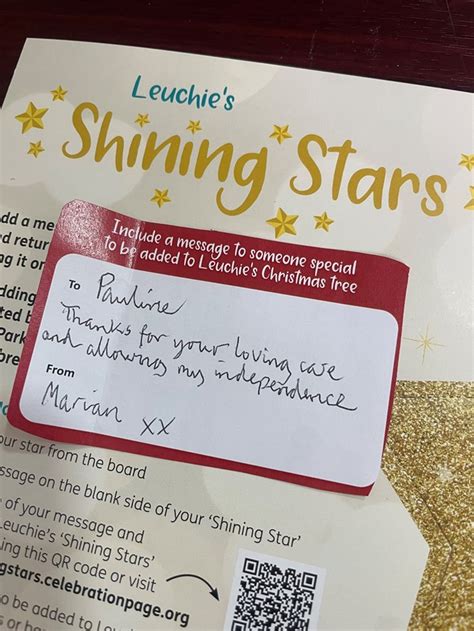 Leuchie's
Shining Stars
Include a message to someone special
to be added to Leuchie's Christmas tree
To Pauline
Thanks for your loving care
and allowing my independence
From
Marian xx
dd a me
d retur
g it or
dding
ted b
Park
bre
our star from the board
ssage on the blank side of your 'Shining Star'
e of your message and
Leuchie's 'Shining Stars'
ing this QR code or visit
gstars.celebrationpage.org
o be added to Leu
s or ha